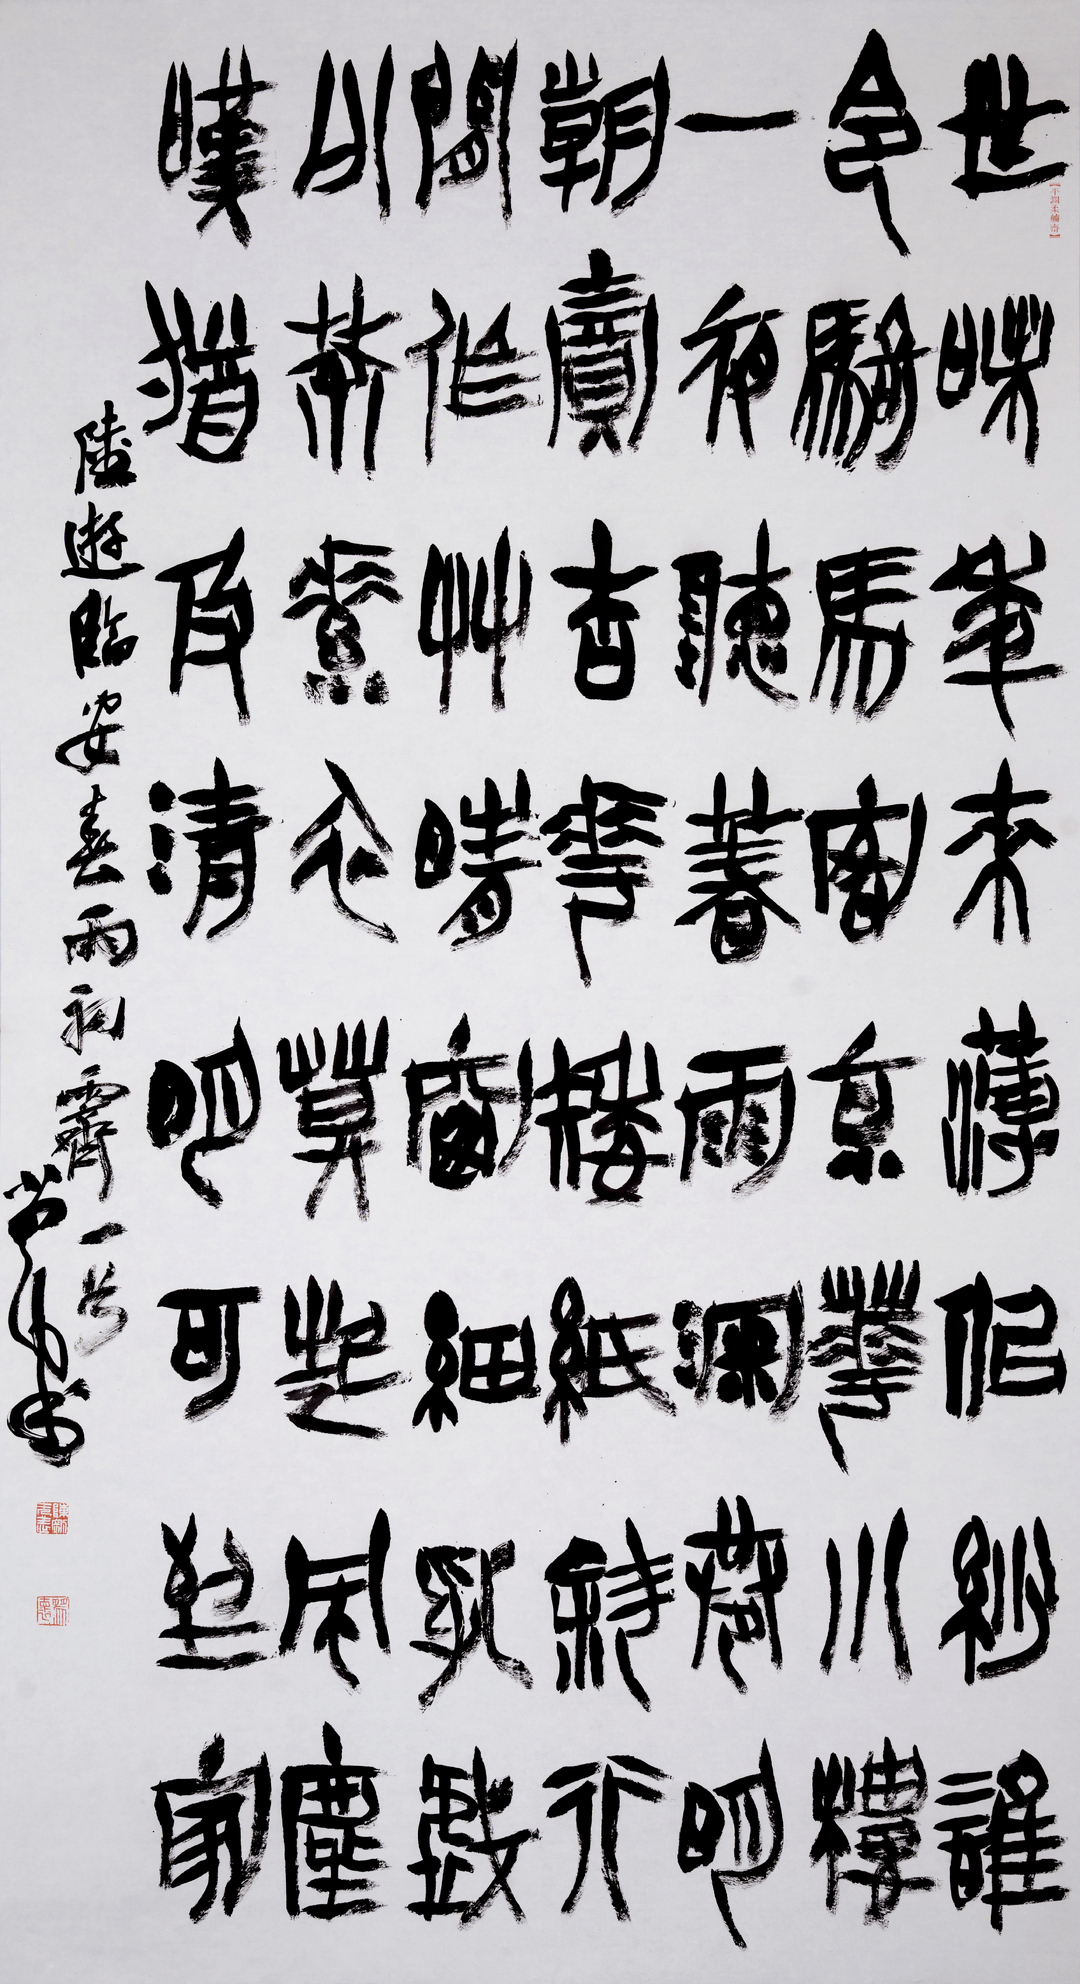 世味年來薄佀紗誰
令騎馬客京華小樓
一夜聽萅雨深巷明
朝賣杏華矮紙斜行
閒作艸晴窗細乳戲
分茶素衣莫起風塵
嘆猶及清明可到家
陸遊臨安春雨初霽一首